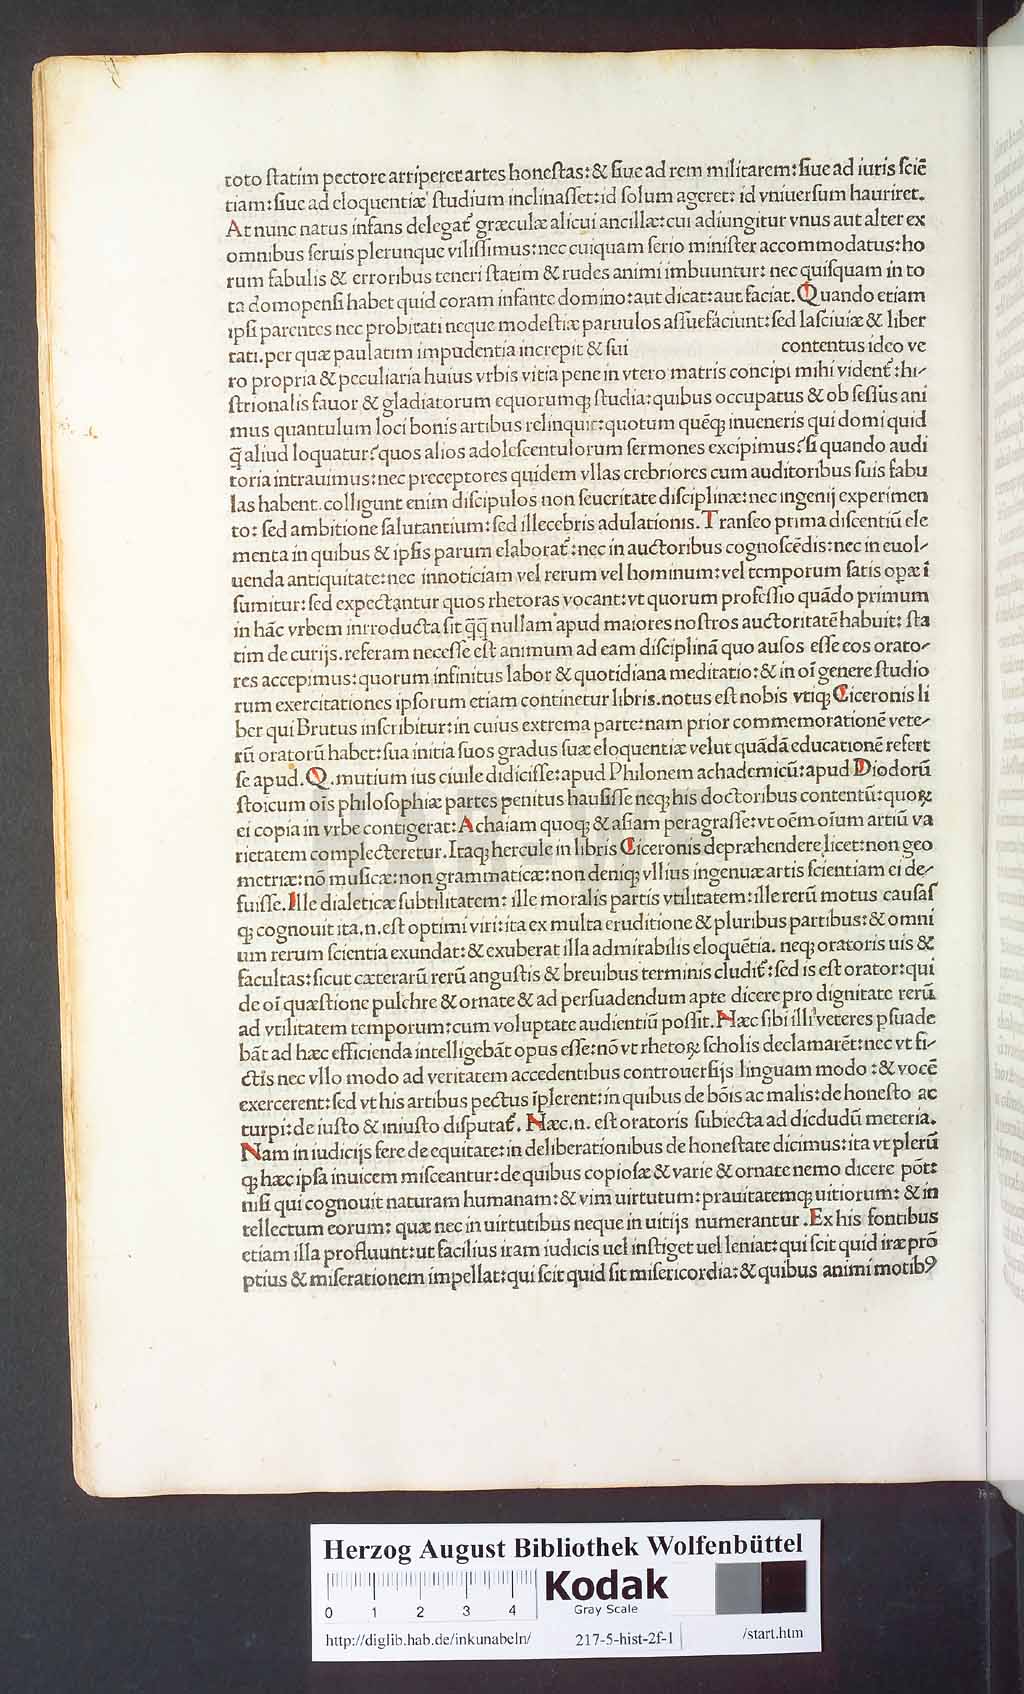 toto ſtatim pectore arriperet artes honeſtas: & ſiue ad rem militarem: ſiue ad iuris ſciē
tiam: ſiue ad eloquentiæ ſtudium inclinaſſet: id ſolum ageret: id vniuerſum hauriret.
At nunc natus infans delegat̃ græculæ alicui ancillæ: cui adiungitur vnus aut alter ex
omnibus ſeruis plerunque viliſſimus: nec cuiquam ſerio miniſter accommodatus: ho
rum fabulis & erroribus teneri ſtatim & rudes animi imbuuntur: nec quiſquam in to
ta domo penſi habet quid coram infante domino: aut dicat: aut faciat. Quando etiam
ipſi parentes nec probitati neque modeſtiæ paruulos aſſuefaciunt: ſed laſciuiæ & liber
tati. per quæ paulatim impudentia increpit & ſui contentus ideo ve
ro propria & peculiaria huius vrbis vitia pene in vtero matris concipi mihi vident̃: hi-
ſtrionalis fauor & gladiatorum equorumqꝫ ſtudia: quibus occupatus & obſeſſus ani
mus quantulum loci bonis artibus relinquit: quotum quēqꝫ inueneris qui domi quid
q̄ aliud loquatur? quos alios adoleſcentulorum ſermones excipimus? ſi quando audi
toria intrauimus: nec preceptores quidem vllas crebriores cum auditoribus ſuis fabu
las habent. colligunt enim diſcipulos non ſeueritate diſciplinæ: nec ingenij experimen
to: ſed ambitione ſalutantium: ſed illecebris adulationis. Tranſeo prima diſcentiū ele
menta in quibus & ipſis parum elaborat̃: nec in auctoribus cognoſcēdis: nec in euol-
uenda antiquitate: nec innoticiam vel rerum vel hominum: vel temporum ſatis opæ ī
ſumitur: ſed expectantur quos rhetoras vocant: vt quorum profeſſio quādo primum
in hāc vrbem inrroducta ſit q̄q̄ nullam apud maiores noſtros auctoritatē habuit: ſta
tim de curijs. referam neceſſe eſt animum ad eam diſciplinā quo auſos eſſe eos orato-
res accepimus: quorum infinitus labor & quotidiana meditatio: & in oī genere ſtudio
rum exercitationes ipſorum etiam continetur libris. notus eſt nobis vtiqꝫ Ciceronis li
ber qui Brutus inſcribitur: in cuius extrema parte: nam prior commemorationē vete-
rū oratorū habet: ſua initia ſuos gradus ſuæ eloquentiæ velut quādā educationē refert
ſe apud. Q. mutium ius ciuile didiciſſe: apud Philonem achademicū: apud Diodorū
ſtoicum oīs philoſophiæ partes penitus hauſiſſe neqꝫ his doctoribus contentū: quoꝝ
ei copia in vrbe contigerat: Achaiam quoqꝫ & aſiam peragraſſe: vt oēm oīum artiū va
rietatem complecteretur. Itaqꝫ hercule in libris Ciceronis depræhendere licet: non geo
metriæ: nō muſicæ: non grammaticæ: non deniqꝫ vllius ingenuæ artis ſcientiam ei de-
fuiſſe. Ille dialeticæ ſubtilitatem: ille moralis partis vtilitatem: ille rerū motus cauſaſ
qꝫ cognouit ita. n. eſt optimi viri: ita ex multa eruditione & pluribus partibus: & omni
um rerum ſcientia exundat: & exuberat illa admirabilis eloquētia. neqꝫ oratoris uis &
facultas: ſicut cæterarū rerū anguſtis & breuibus terminis cludit̃: ſed is eſt orator: qui
de oī quæſtione pulchre & ornate & ad perſuadendum apte dicere pro dignitate rerū
ad vtilitatem temporum: cum voluptate audientiū poſſit. Hæc ſibi illi veteres pſuade
bāt ad hæc efficienda intelligebāt opus eſſe: nō vt rhetoꝝ ſcholis declamarēt: nec vt fi-
ctis nec vllo modo ad veritatem accedentibus controuerſijs linguam modo: & vocē
exercerent: ſed vt his artibus pectus īplerent: in quibus de bōis ac malis: de honeſto ac
turpi: de iuſto & iniuſto diſputat̃. Hæc. n. eſt oratoris ſubiecta ad dicdudū meteria.
Nam in iudicijs fere de equitate: in deliberationibus de honeſtate dicimus: ita vt plerū
qꝫ hæc ipſa inuicem miſceantur: de quibus copioſæ & varie & ornate nemo dicere pōt:
niſi qui cognouit naturam humanam: & vim uirtutum: prauitatemqꝫ uitiorum: & in
tellectum eorum: quæ nec in uirtutibus neque in uitijs numerantur. Ex his fontibus
etiam illa profluunt: ut facilius iram iudicis uel inſtiget uel leniat: qui ſcit quid iræ prō
ptius & miſerationem impellat: qui ſcit quid ſit miſericordia: & quibus animi motibꝰ
Herzog August Bibliothek Wolfenbüttel
0 1 2 3 4
Kodak
Gray Scale
http://diglib.hab.de/inkunabeln/ 217-5-hist-2f-1 /start.htm